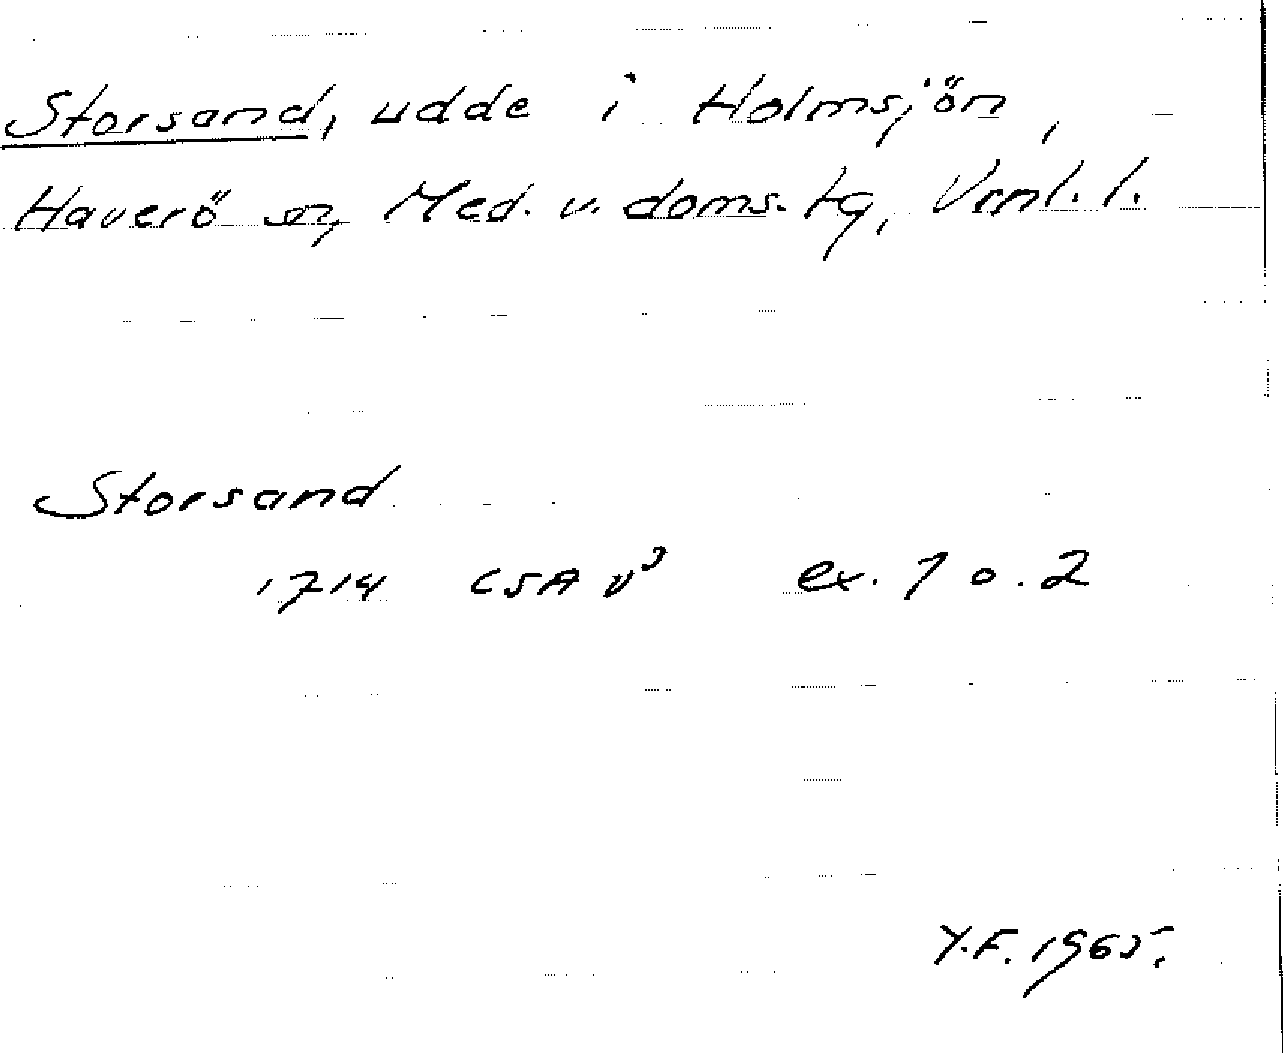 Storsand, udde i Holmsjön,
Haverö sn, Med. v. doms. tg, Vml. l.
Storsand
1714 CSA v³ ex. 1 o. 2
Y.F. 1965.